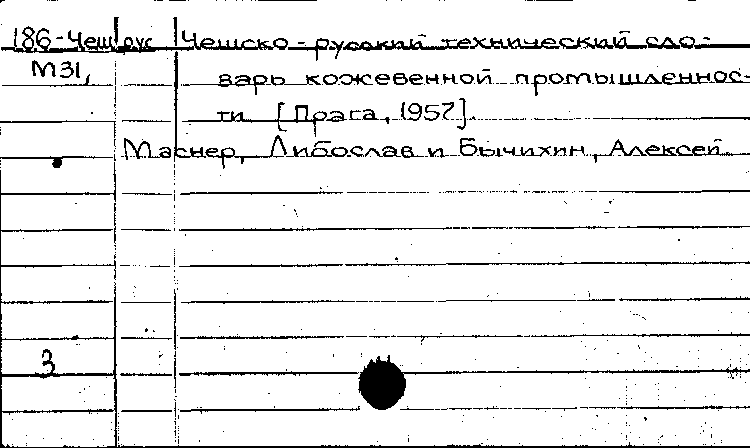 186-Чеш рус Чешско-русский технический сло-
М31, варь кожевенной промышленнос-
ти. [Прага, 1957].
Маснер, Либослав и Бычихин, Алексей.
3